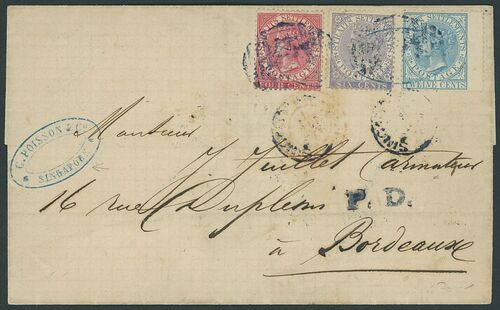 STRAITS SETTLEMENTS
POSTAGE
FOUR CENTS
STRAITS SETTLEMENTS
POSTAGE
SIX CENTS
STRAITS SETTLEMENTS
POSTAGE
TWELVE CENTS
C. POISSON & Co
SINGAPORE
Monsieur
J. Juillet Armateur
16 rue Dupleix
P.D.
à Bordeaux